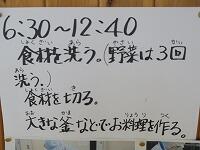 6:30～12:40
食材を洗う。(野菜は3回
洗う。)
食材を切る。
大きな釜などでお料理を作る。